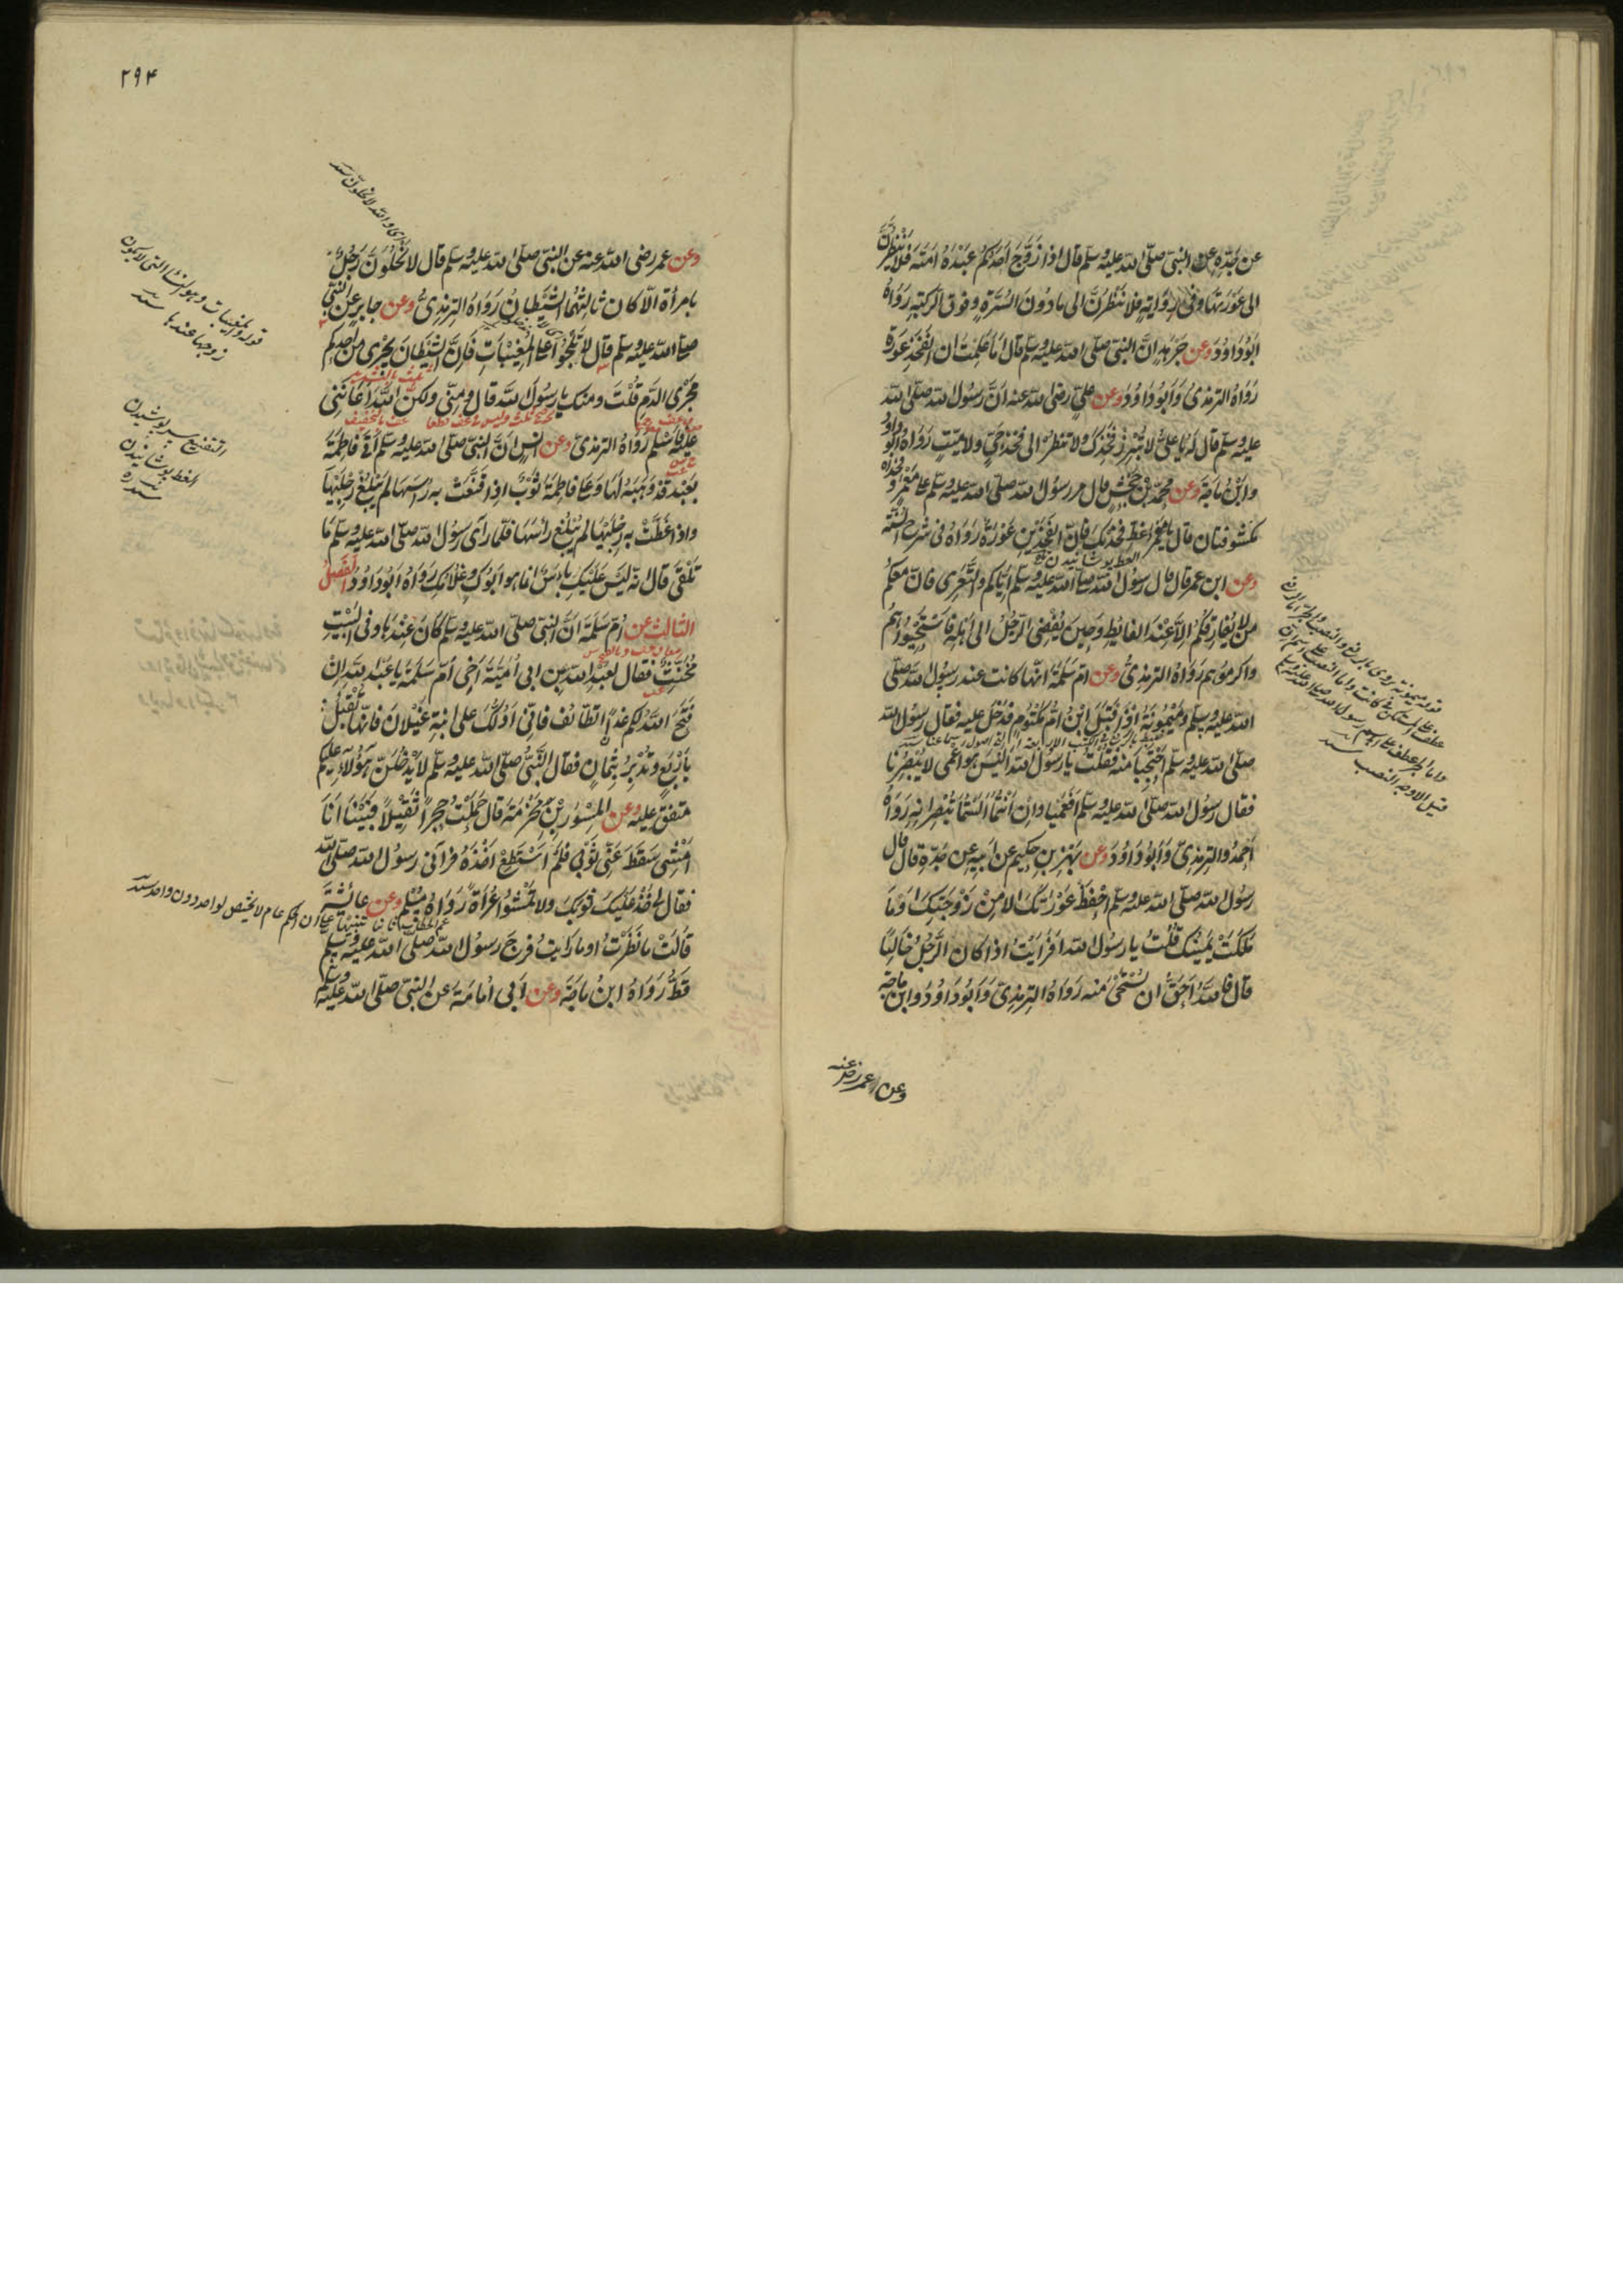 عن جده عن النبي صلى الله عليه وسلم قال اذا زوج احدكم عبده امته فلا ينظرن
الى عورتها وفي رواية فلا ينظرن الى ما دون السرة وفوق الركبة رواه
ابوداود وعن جرهد ان النبي صلى الله عليه وسلم قال اما علمت ان الفخذ عورة
رواه الترمذي وابوداود وعن علي رضي الله عنه ان رسول الله صلى الله
عليه وسلم قال له يا علي لا تبرز فخذك ولا تنظر الى فخذ حي ولا ميت رواه ابوداود
وابن ماجة وعن محمد بن جحش قال مر رسول الله صلى الله عليه وسلم على معمر وفخذاه
مكشوفتان قال يا معمر غط فخذيك فان الفخذين عورة رواه في شرح السنة
وعن ابن عمر قال قال رسول الله صلى الله عليه وسلم اياكم والتعري فان معكم
من لا يفارقكم الا عند الغائط وحين يفضي الرجل الى اهله فاستحيوهم
واكرموهم رواه الترمذي وعن ام سلمة انها كانت عند رسول الله صلى
الله عليه وسلم وميمونة اذ اقبل ابن ام مكتوم فدخل عليه فقال رسول الله
صلى الله عليه وسلم احتجبا منه فقلت يا رسول الله اليس هو اعمى لا يبصرنا
فقال رسول الله صلى الله عليه وسلم افعمياوان انتما الستما تبصرانه رواه
احمد والترمذي وابوداود وعن بهز بن حكيم عن ابيه عن جده قال قال
رسول الله صلى الله عليه وسلم احفظ عورتك الا من زوجتك او ما
ملكت يمينك قلت يا رسول الله افرايت اذا كان الرجل خاليا
قال فالله احق ان يستحيى منه رواه الترمذي وابوداود وابن ماجة
وعن عمر رضي عنه
٢٩۴
وعن عمر رضي الله عنه عن النبي صلى الله عليه وسلم قال لا يخلون رجل
بامرأة الا كان ثالثهما الشيطان رواه الترمذي وعن جابر عن النبي
صلى الله عليه وسلم قال لا تلجوا على المغيبات فان الشيطان يجري من احدكم
مجرى الدم قلت ومنك يا رسول الله قال ومني ولكن الله اعانني
عليه فاسلم رواه الترمذي وعن انس ان النبي صلى الله عليه وسلم اتى فاطمة
بعبد قد وهبه لها وعلى فاطمة ثوب اذا قنعت به راسها لم يبلغ رجليها
واذا غطت به رجليها لم يبلغ راسها فلما راى رسول الله صلى الله عليه وسلم ما
تلقى قال انه ليس عليك باس انما هو ابوك وغلامك رواه ابوداود الفصل
الثالث عن ام سلمة ان النبي صلى الله عليه وسلم كان عندها وفي البيت
مخنث فقال لعبد الله بن ابي امية اخي ام سلمة يا عبد الله ان
فتح الله لكم غدا الطائف فاني ادلك على ابنة غيلان فانها تقبل
باربع وتدبر بثمان فقال النبي صلى الله عليه وسلم لا يدخلن هؤلاء عليكم
متفق عليه وعن المسور بن مخرمة قال حملت حجرا ثقيلا فبينا انا
امشي سقط عني ثوبي فلم استطع اخذه فرآني رسول الله صلى الله
فقال خذ عليك ثوبك ولا تمشوا عراة رواه مسلم وعن عائشة
قالت ما نظرت او ما رايت فرج رسول الله صلى الله عليه وسلم
قط رواه ابن ماجة وعن ابي امامة عن النبي صلى الله عليه وسلم
التقنع سر پوشيدن
الغط پوشانيدن